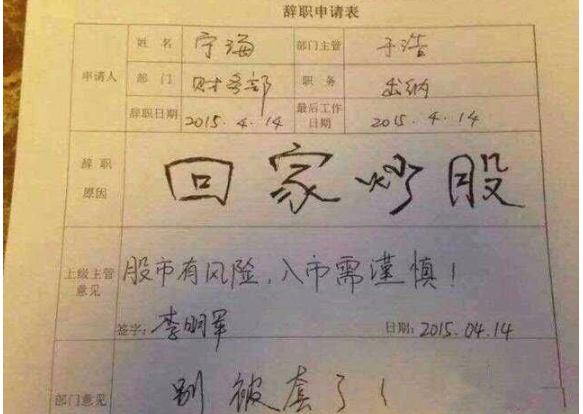 辞职申请表
申请人 姓名 宁海 部门主管 于浩
部门 财务部 职务 出纳
辞职日期 2015.4.14 最后工作日期 2015.4.14
辞职原因 回家炒股
上级主管意见 股市有风险,入市需谨慎!
签字: 李明军 日期: 2015.04.14
部门意见 别被套了!